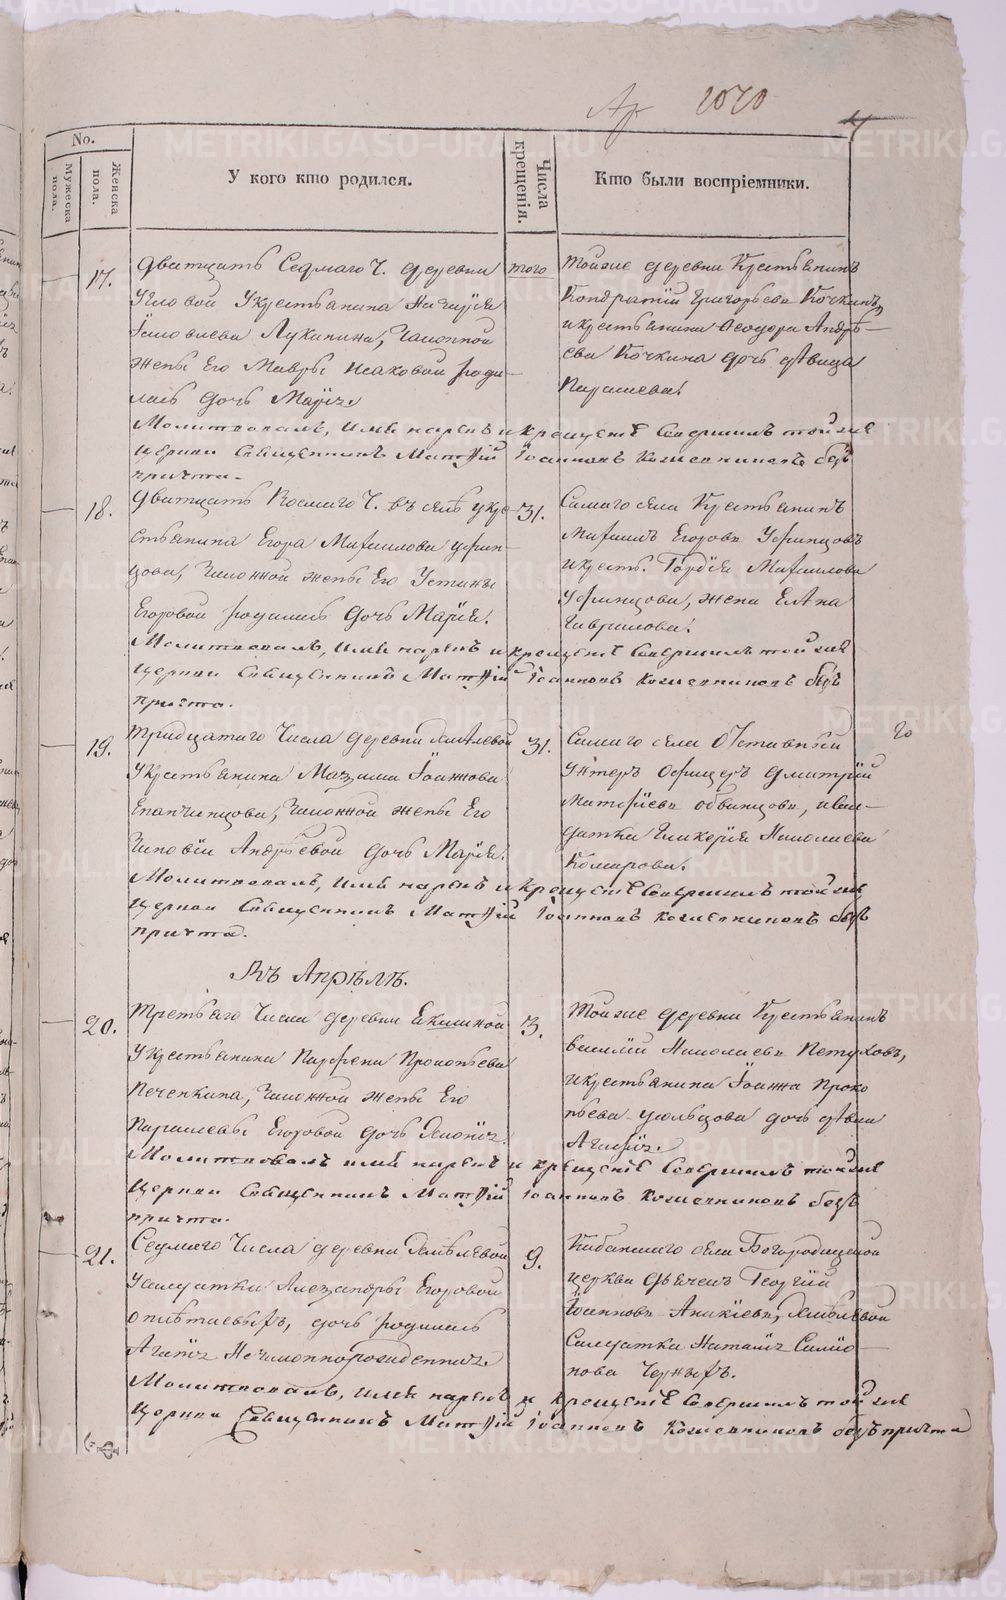 2020
No.
Мужеска пола.
Женска пола.
У кого кто родился.
Числа крещенія.
Кто были воспріемники.
17.
Дватцать Седмаго Ч. деревни
у крестьянина
Лукинина, Законной
жены Его Мавры Исаковой роди-
лась дочь Марія.
Молитвовалъ, имя нарекъ и крещеніе совершилъ той же
церкви Священникъ Матѳій Іоанновъ Кожевниковъ безъ
причта.
того
Тойже деревни Крестьянинъ
Кондратій Григорьевъ Кочкинъ,
и крестьянина Ѳеодора Андрѣ-
ева Кочкина дочь дѣвица
Парасковья.
18.
Дватцать Восмаго Ч. въ селѣ у кре-
стьянина Егора Михаилова Уфин-
цова, Законной жены Его Устиньи
Егоровой родилась дочь Марія.
Молитвовалъ, имя нарекъ и крещеніе совершилъ той же
церкви Священникъ Матѳій Іоанновъ Кожевниковъ безъ
причта.
31.
Самаго села Крестьянинъ
Михаилъ Егоровъ Уфинцовъ
и крест. Гордѣя Михаилова
Уфинцова, жена Елена
Гаврилова.
19.
Тридцатаго Числа деревни
у крестьянина Іоаннова
Епанчинцова, Законной жены Его
Андрѣевой дочь Марія.
Молитвовалъ, имя нарекъ и крещеніе совершилъ той же
церкви Священникъ Матѳій Іоанновъ Кожевниковъ безъ
причта.
31.
Самаго села Отставный
Унтеръ Офицеръ Дмитрій
Матфіевъ Обвинцовъ, и сол-
датка Гликерія Николаева
Комарова.
Въ Апрѣлѣ.
20.
Третьяго Числа деревни
у крестьянина Парфена Прокопьева
Печенкина, Законной жены Его
Парасковьи Егоровой дочь
Молитвовалъ имя нарекъ и крещеніе совершилъ той же
церкви Священникъ Матѳій Іоанновъ Кожевниковъ безъ
причта.
3.
Тойже деревни Крестьянинъ
Василій Николаевъ Петуховъ,
и крестьянина Іоанна Проко
пьева дочь дѣвица
Агафія.
21.
Седмаго Числа деревни
у солдатки Александры Егоровой
дочь родилась
Агапія Незаконнорожденная.
Молитвовалъ, имя нарекъ и крещеніе совершилъ той же
церкви Священникъ Матѳій Іоанновъ Кожевниковъ безъ причта
9.
села Богородицкой
церкви дьячекъ Георгій
Іоанновъ Аникіевъ,
Солдатка Наталія Симіо-
нова Черныхъ.
METRIKI.GASO-URAL.RU